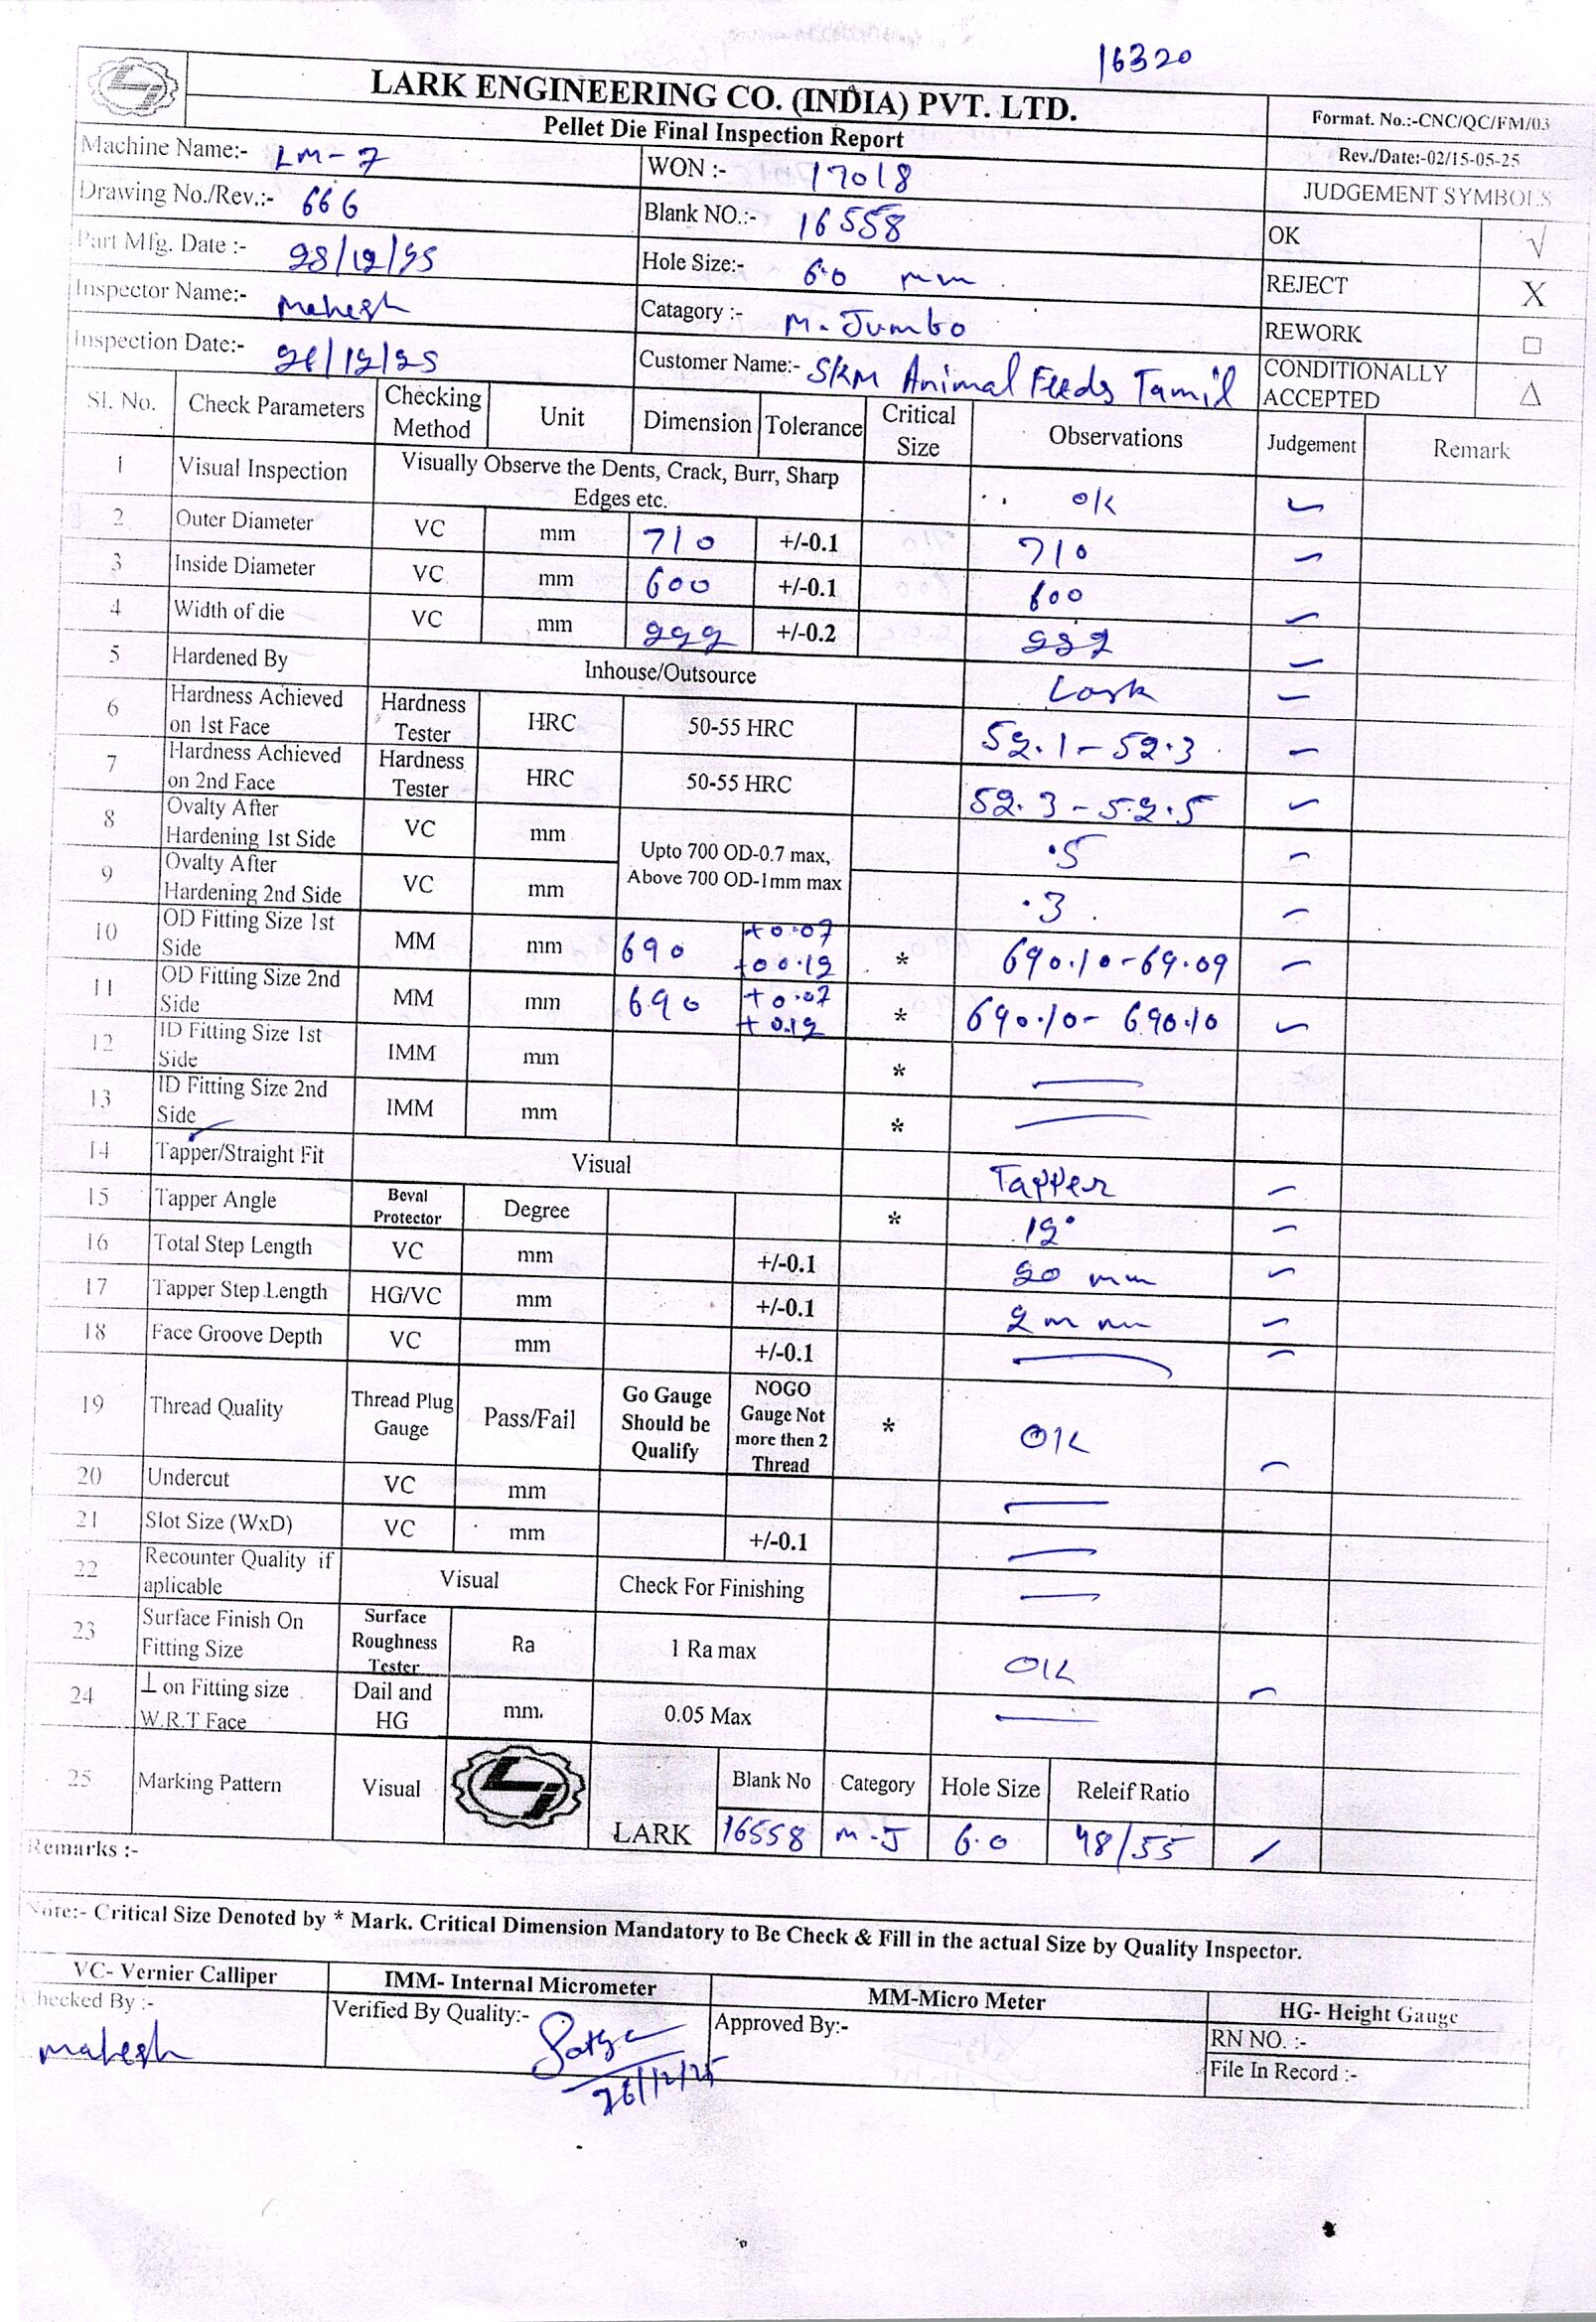 16320
LARK ENGINEERING CO. (INDIA) PVT. LTD.
Pellet Die Final Inspection Report
Format. No.:-CNC/QC/FM/03
Rev./Date:-02/15-05-25
Machine Name:- LM-7
WON :- 17018
JUDGEMENT SYMBOLS
Drawing No./Rev.:- 666
Blank NO.:- 16558
OK √
Part Mfg. Date :-
Hole Size:- 6.0 mm
REJECT X
Inspector Name:- Mahesh
Catagory :- M. Jumbo
REWORK □
Inspection Date:-
Customer Name:- SKM Animal Feeds Tamil
CONDITIONALLY ACCEPTED △
Sl. No. Check Parameters Checking Method Unit Dimension Tolerance Critical Size Observations Judgement Remark
1 Visual Inspection Visually Observe the Dents, Crack, Burr, Sharp Edges etc. OK
2 Outer Diameter VC mm 710 +/-0.1 710
3 Inside Diameter VC mm 600 +/-0.1 600
4 Width of die VC mm 222 +/-0.2 222
5 Hardened By Inhouse/Outsource Lark
6 Hardness Achieved on 1st Face Hardness Tester HRC 50-55 HRC 52.1-52.3
7 Hardness Achieved on 2nd Face Hardness Tester HRC 50-55 HRC 52.3-52.5
8 Ovalty After Hardening 1st Side VC mm Upto 700 OD-0.7 max, Above 700 OD-1mm max .5
9 Ovalty After Hardening 2nd Side VC mm .3
10 OD Fitting Size 1st Side MM mm 690 +0.07 +00.12 * 690.10-69.09
11 OD Fitting Size 2nd Side MM mm 690 +0.07 +0.12 * 690.10- 690.10
12 ID Fitting Size 1st Side IMM mm *
13 ID Fitting Size 2nd Side IMM mm *
14 Tapper/Straight Fit Visual Tapper
15 Tapper Angle Beval Protector Degree * 12°
16 Total Step Length VC mm +/-0.1 20 mm
17 Tapper Step Length HG/VC mm +/-0.1 2 mm
18 Face Groove Depth VC mm +/-0.1
19 Thread Quality Thread Plug Gauge Pass/Fail Go Gauge Should be Qualify NOGO Gauge Not more then 2 Thread * OK
20 Undercut VC mm
21 Slot Size (WxD) VC mm +/-0.1
22 Recounter Quality if aplicable Visual Check For Finishing
23 Surface Finish On Fitting Size Surface Roughness Tester Ra 1 Ra max OK
24 ⊥ on Fitting size W.R.T Face Dail and HG mm. 0.05 Max
25 Marking Pattern Visual LARK Blank No Category Hole Size Releif Ratio
16558 M-J 6.0 48/55
Remarks :-
Note:- Critical Size Denoted by * Mark. Critical Dimension Mandatory to Be Check & Fill in the actual Size by Quality Inspector.
VC- Vernier Calliper IMM- Internal Micrometer MM-Micro Meter HG- Height Gauge
Checked By :- Mahesh
Verified By Quality:- 26/12/25
Approved By:-
RN NO. :-
File In Record :-